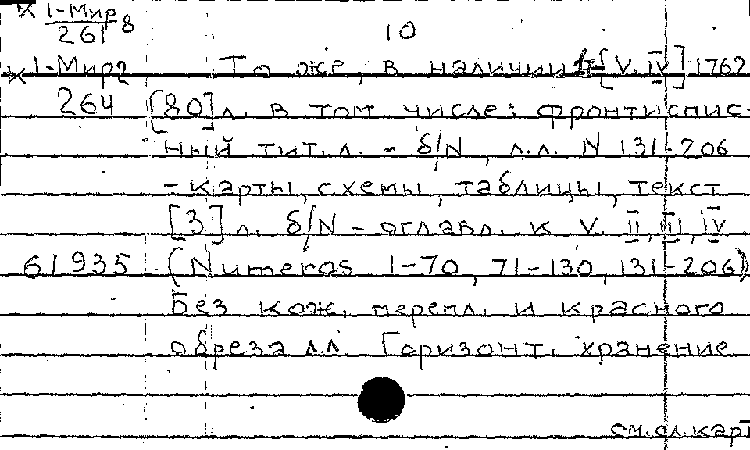 1-Мир8
261
10
1-Мир2 То же, в наличии [V. IV] 1762
264 [80] л. в том числе: фронтиспис-
ный тит. л. - б/N, л.л. N 131-206
- карты, схемы, таблицы, текст
[3] л. б/N - оглавл. к V. II, III, IV
61935 (Numeros 1-70, 71-130, 131-206)
Без кож. перепл. и красного
обреза лл. Горизонт. хранение
см. сл. карт